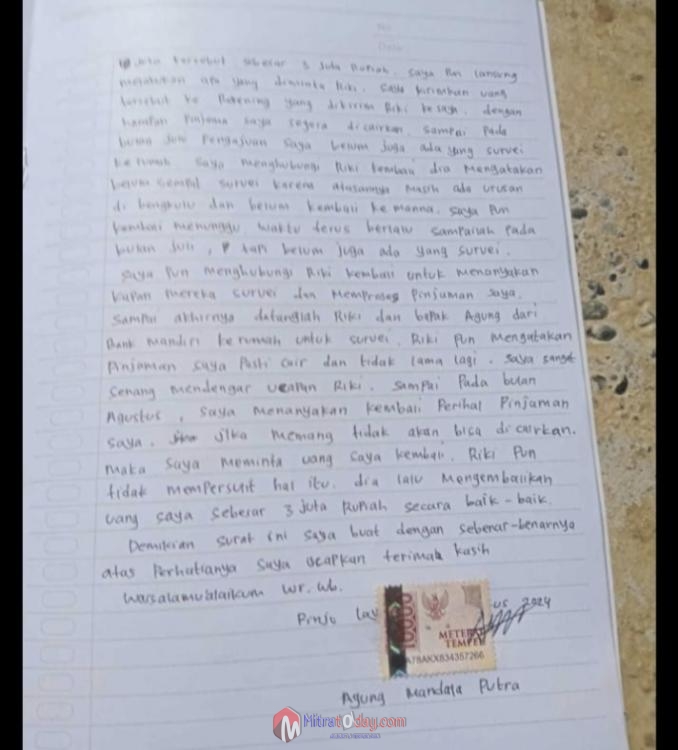 No:
Date:
Juta tersebut sebesar 3 Juta Rupiah. saya Pun lansung
melakukan apa yang diminta Riki. saya kirimkan uang
tersebut ke Rekening yang dikirim Riki ke saya, dengan
harapan Pinjaman saya segera dicairkan. sampai Pada
bulan Juni Pengajuan saya belum juga ada yang survei
ke rumah. saya menghubungi Riki kembali dia Mengatakan
belum sempat survei karena atasannya Masih ada urusan
di bengkulu dan belum kembali ke manna. saya Pun
kembali menunggu. waktu terus berlalu sampailah pada
bulan Juli, tapi belum juga ada yang survei.
saya Pun menghubungi Riki kembali untuk menanyakan
kapan mereka survei dan Memproses Pinjaman saya.
sampai akhirnya datanglah Riki dan bapak Agung dari
Bank mandiri ke rumah untuk survei. Riki Pun Mengatakan
Pinjaman saya Pasti cair dan tidak lama lagi. saya sangat
senang mendengar ucapan Riki. sampai Pada bulan
Agustus, saya Menanyakan kembali Perihal Pinjaman
saya. Jika memang tidak akan bisa dicairkan.
maka saya Meminta uang saya kembali. Riki Pun
tidak mempersulit hal itu. dia lalu Mengembalikan
uang saya sebesar 3 juta Rupiah secara baik-baik.
Demikian surat ini saya buat dengan sebenar-benarnya
atas Perhatianya saya ucapkan terimah kasih
Wassalamualaikum wr. wb.
Pinju Lay us 2024
10000
METERAI
TEMPEL
A7BAKX834357266
Agung Mandala Putra
Mitratoday.com